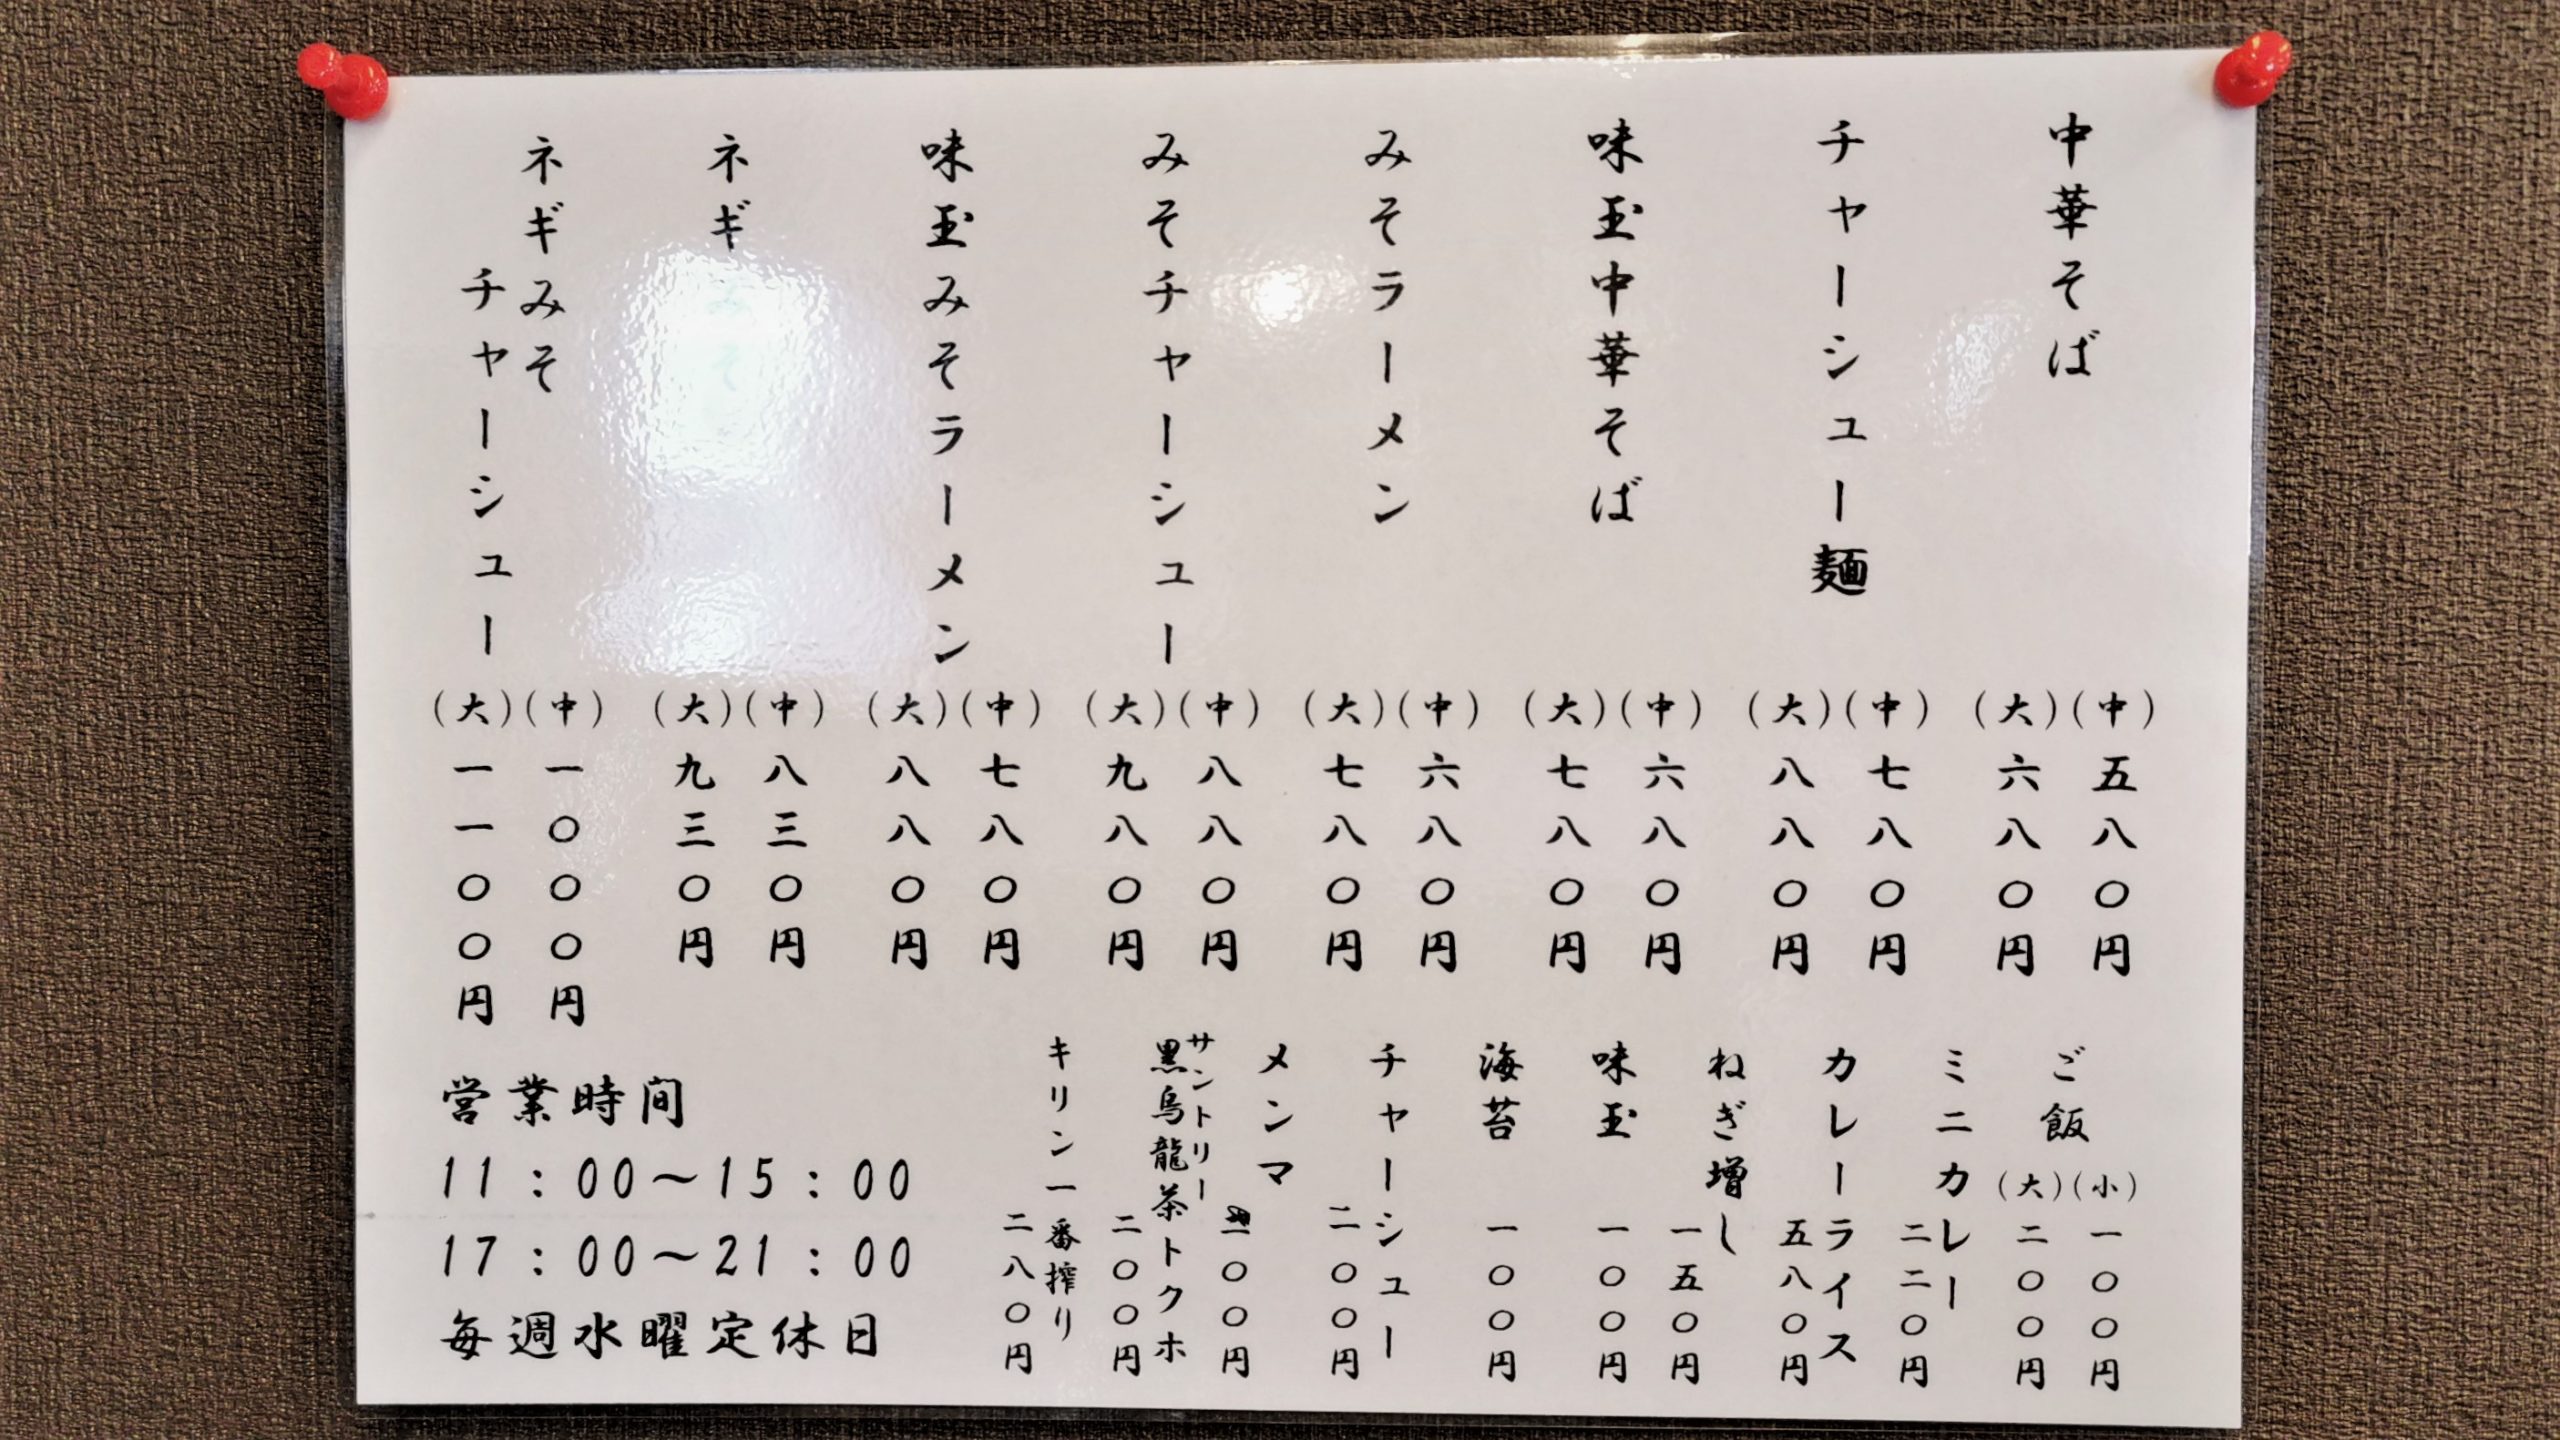 中華そば
(中)五八〇円
(大)六八〇円
チャーシュー麺
(中)七八〇円
(大)八八〇円
味玉中華そば
(中)六八〇円
(大)七八〇円
みそラーメン
(中)六八〇円
(大)七八〇円
みそチャーシュー
(中)八八〇円
(大)九八〇円
味玉みそラーメン
(中)七八〇円
(大)八八〇円
ネギみそ
(中)八三〇円
(大)九三〇円
ネギみそ
チャーシュー
(中)一〇〇〇円
(大)一一〇〇円
ご飯
(小)一〇〇円
(大)二〇〇円
ミニカレー
二二〇円
カレーライス
五八〇円
ねぎ増し
一五〇円
味玉
一〇〇円
海苔
一〇〇円
チャーシュー
二〇〇円
メンマ
〇〇円
サントリー
黒烏龍茶トクホ
二〇〇円
キリン一番搾り
二八〇円
営業時間
11:00〜15:00
17:00〜21:00
毎週水曜定休日